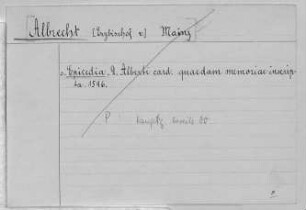 [Albrecht (Erzbischof v.) Mainz]
s. Epicedia. D. Albrech card. quaedam memoriae inscrip
ta. 1546.
P